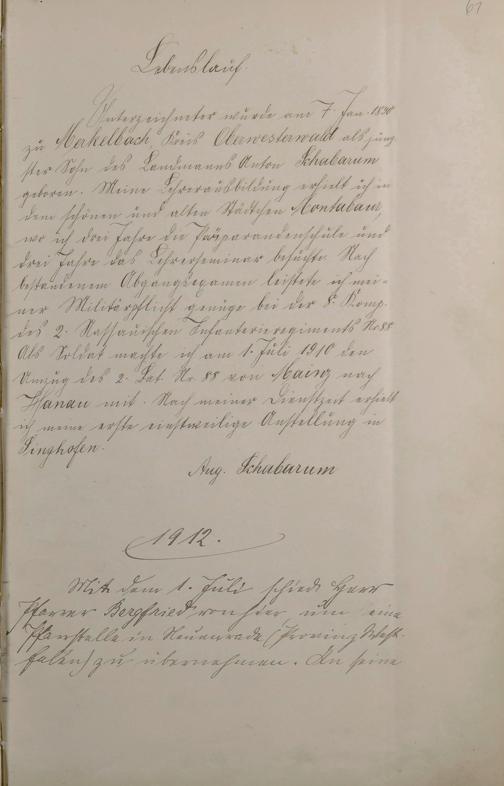 61
Lebenslauf.
Unterzeichneter wurde am 7. Jan. 1890
zu Merkelbach, Kreis Oberwesterwald als jüng-
ster Sohn des Landmanns Anton Schabarum
geboren. Meine Lehrerausbildung erhielt ich in
dem schönen und alten Städtchen Montabaur,
wo ich drei Jahre die Präparandenschule und
drei Jahre das Lehrerseminar besuchte. Nach
bestandenem Abgangsexamen leistete ich mei-
ner Militärpflicht genüge bei der 8. Komp.
des 2. Nassauischen Infanterieregiments Nr 88
Als Soldat machte ich am 1. Juli 1910 den
Umzug des 2. Bat. Nr 88 von Mainz nach
Hanau mit. Nach meiner Dienstzeit erhielt
ich meine erste einstweilige Anstellung in
Singhofen.
Aug. Schabarum
1912.
Mit dem 1. Juli schied Herr
Pfarrer Bergfried von hier um eine
Pfarrstelle in Neuenrade (Provinz West-
falen) zu übernehmen. An seine